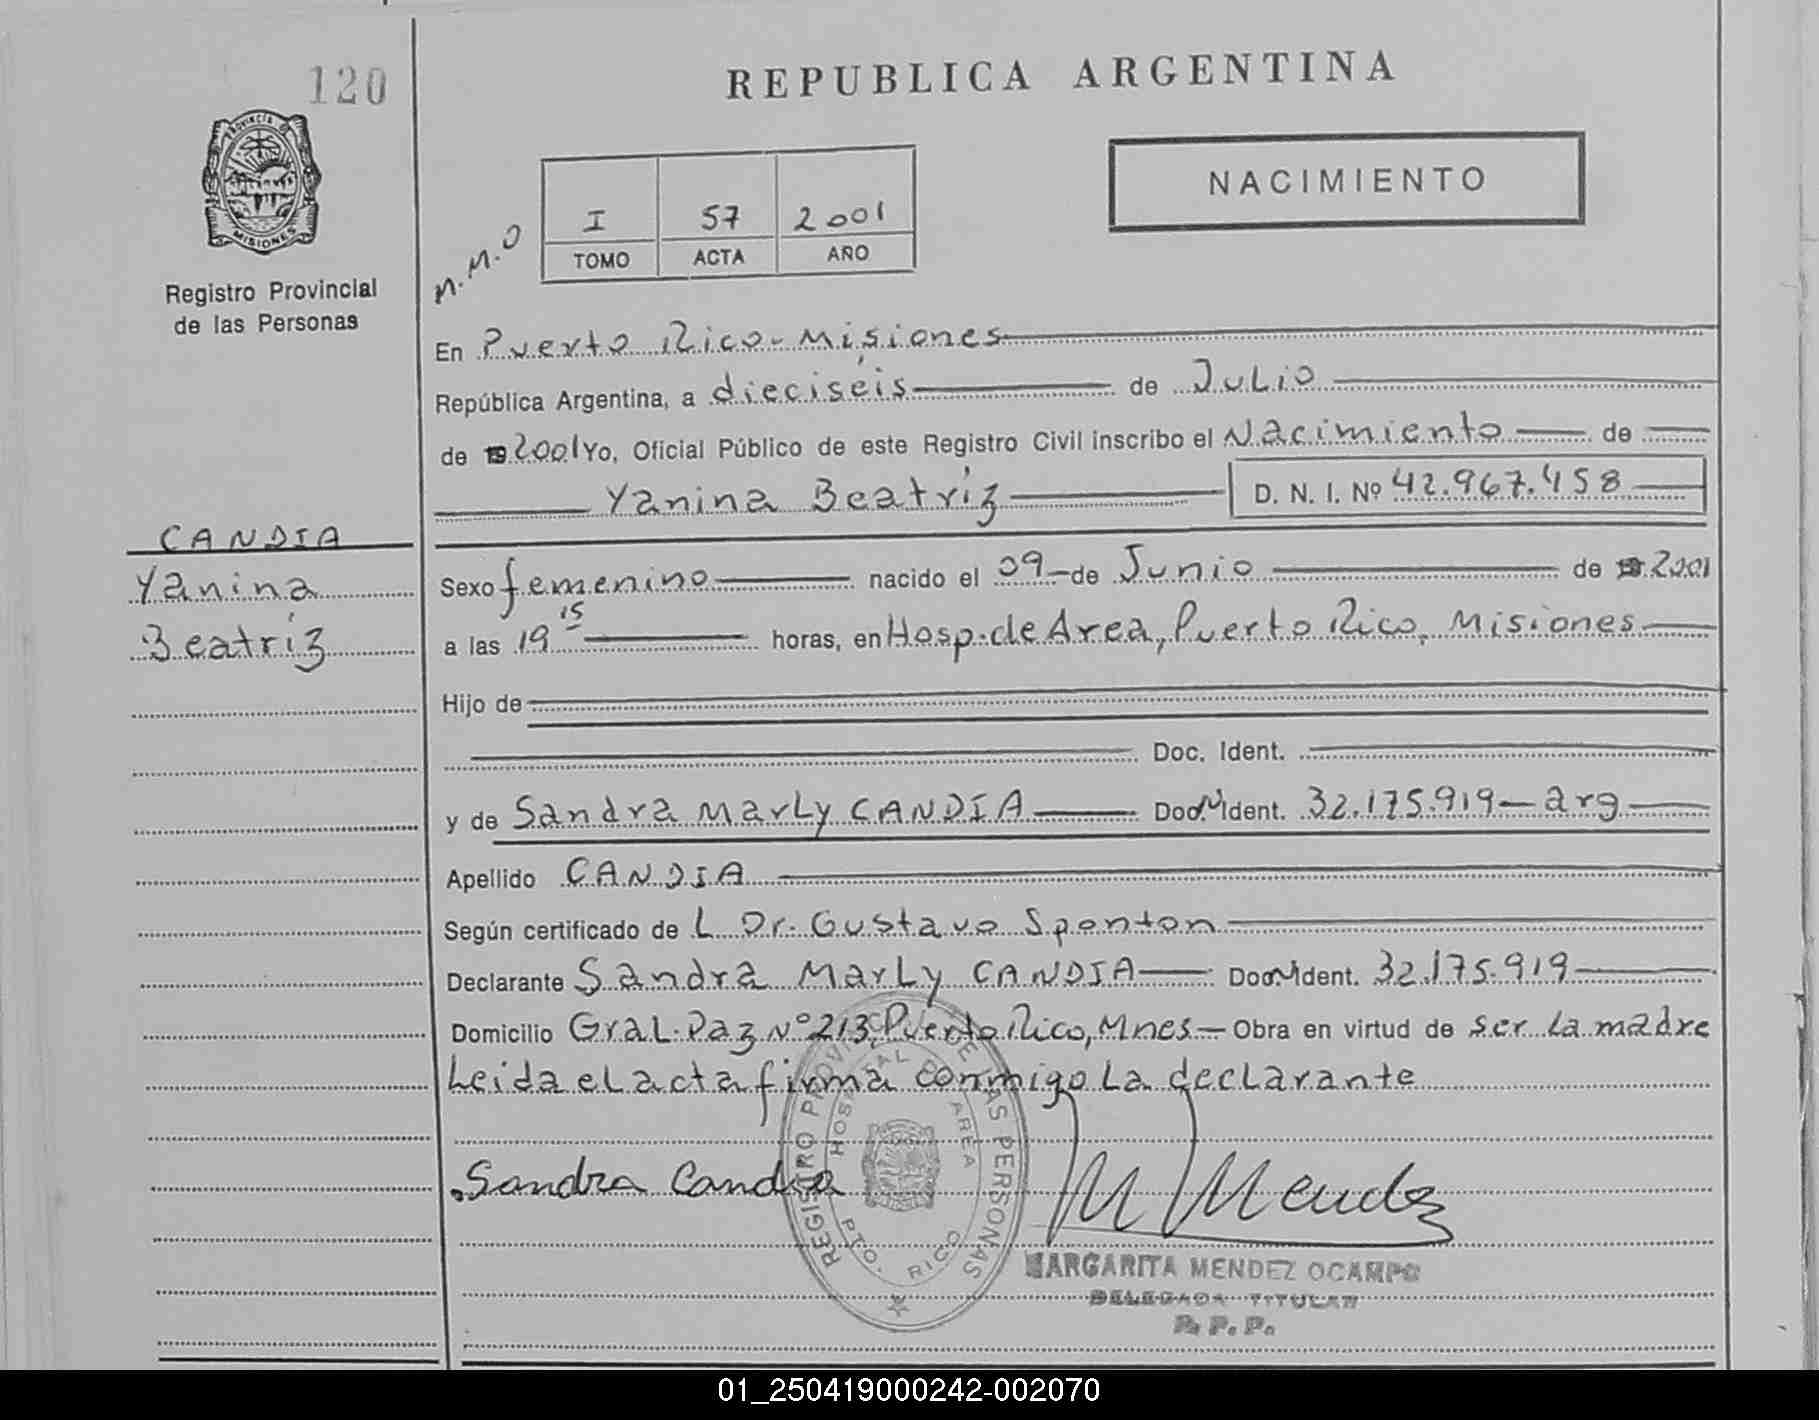 120
REPUBLICA ARGENTINA
PROVINCIA DE
MISIONES
Registro Provincial
de las Personas
NACIMIENTO
I 57 2001
TOMO ACTA AÑO
M.M.O
En Puerto Rico - Misiones
República Argentina, a dieciséis de Julio
de 2001 Yo, Oficial Público de este Registro Civil inscribo el Nacimiento de
Yanina Beatríz D. N. I. Nº 42.967.458
CANDIA
Yanina
Beatríz
Sexo femenino nacido el 09 de Junio de 2001
a las 19 15 horas, en Hosp. de Area, Puerto Rico, Misiones
Hijo de
Doc. Ident.
y de Sandra Marly CANDIA Doc. Ident. 32.175.919 - arg
Apellido CANDIA
Según certificado de L Dr. Gustavo Sponton
Declarante Sandra Marly CANDIA Doc. Ident. 32.175.919
Domicilio Gral. Paz Nº 213, Puerto Rico, Mnes - Obra en virtud de ser la madre
Leida el acta firma conmigo la declarante
Sandra Candia
M Mendez
REGISTRO PROVINCIAL DE LAS PERSONAS
HOSPITAL DE AREA
PTO. RICO
MARGARITA MENDEZ OCAMPO
DELEGADA TITULAR
R. P. P.
01_250419000242-002070